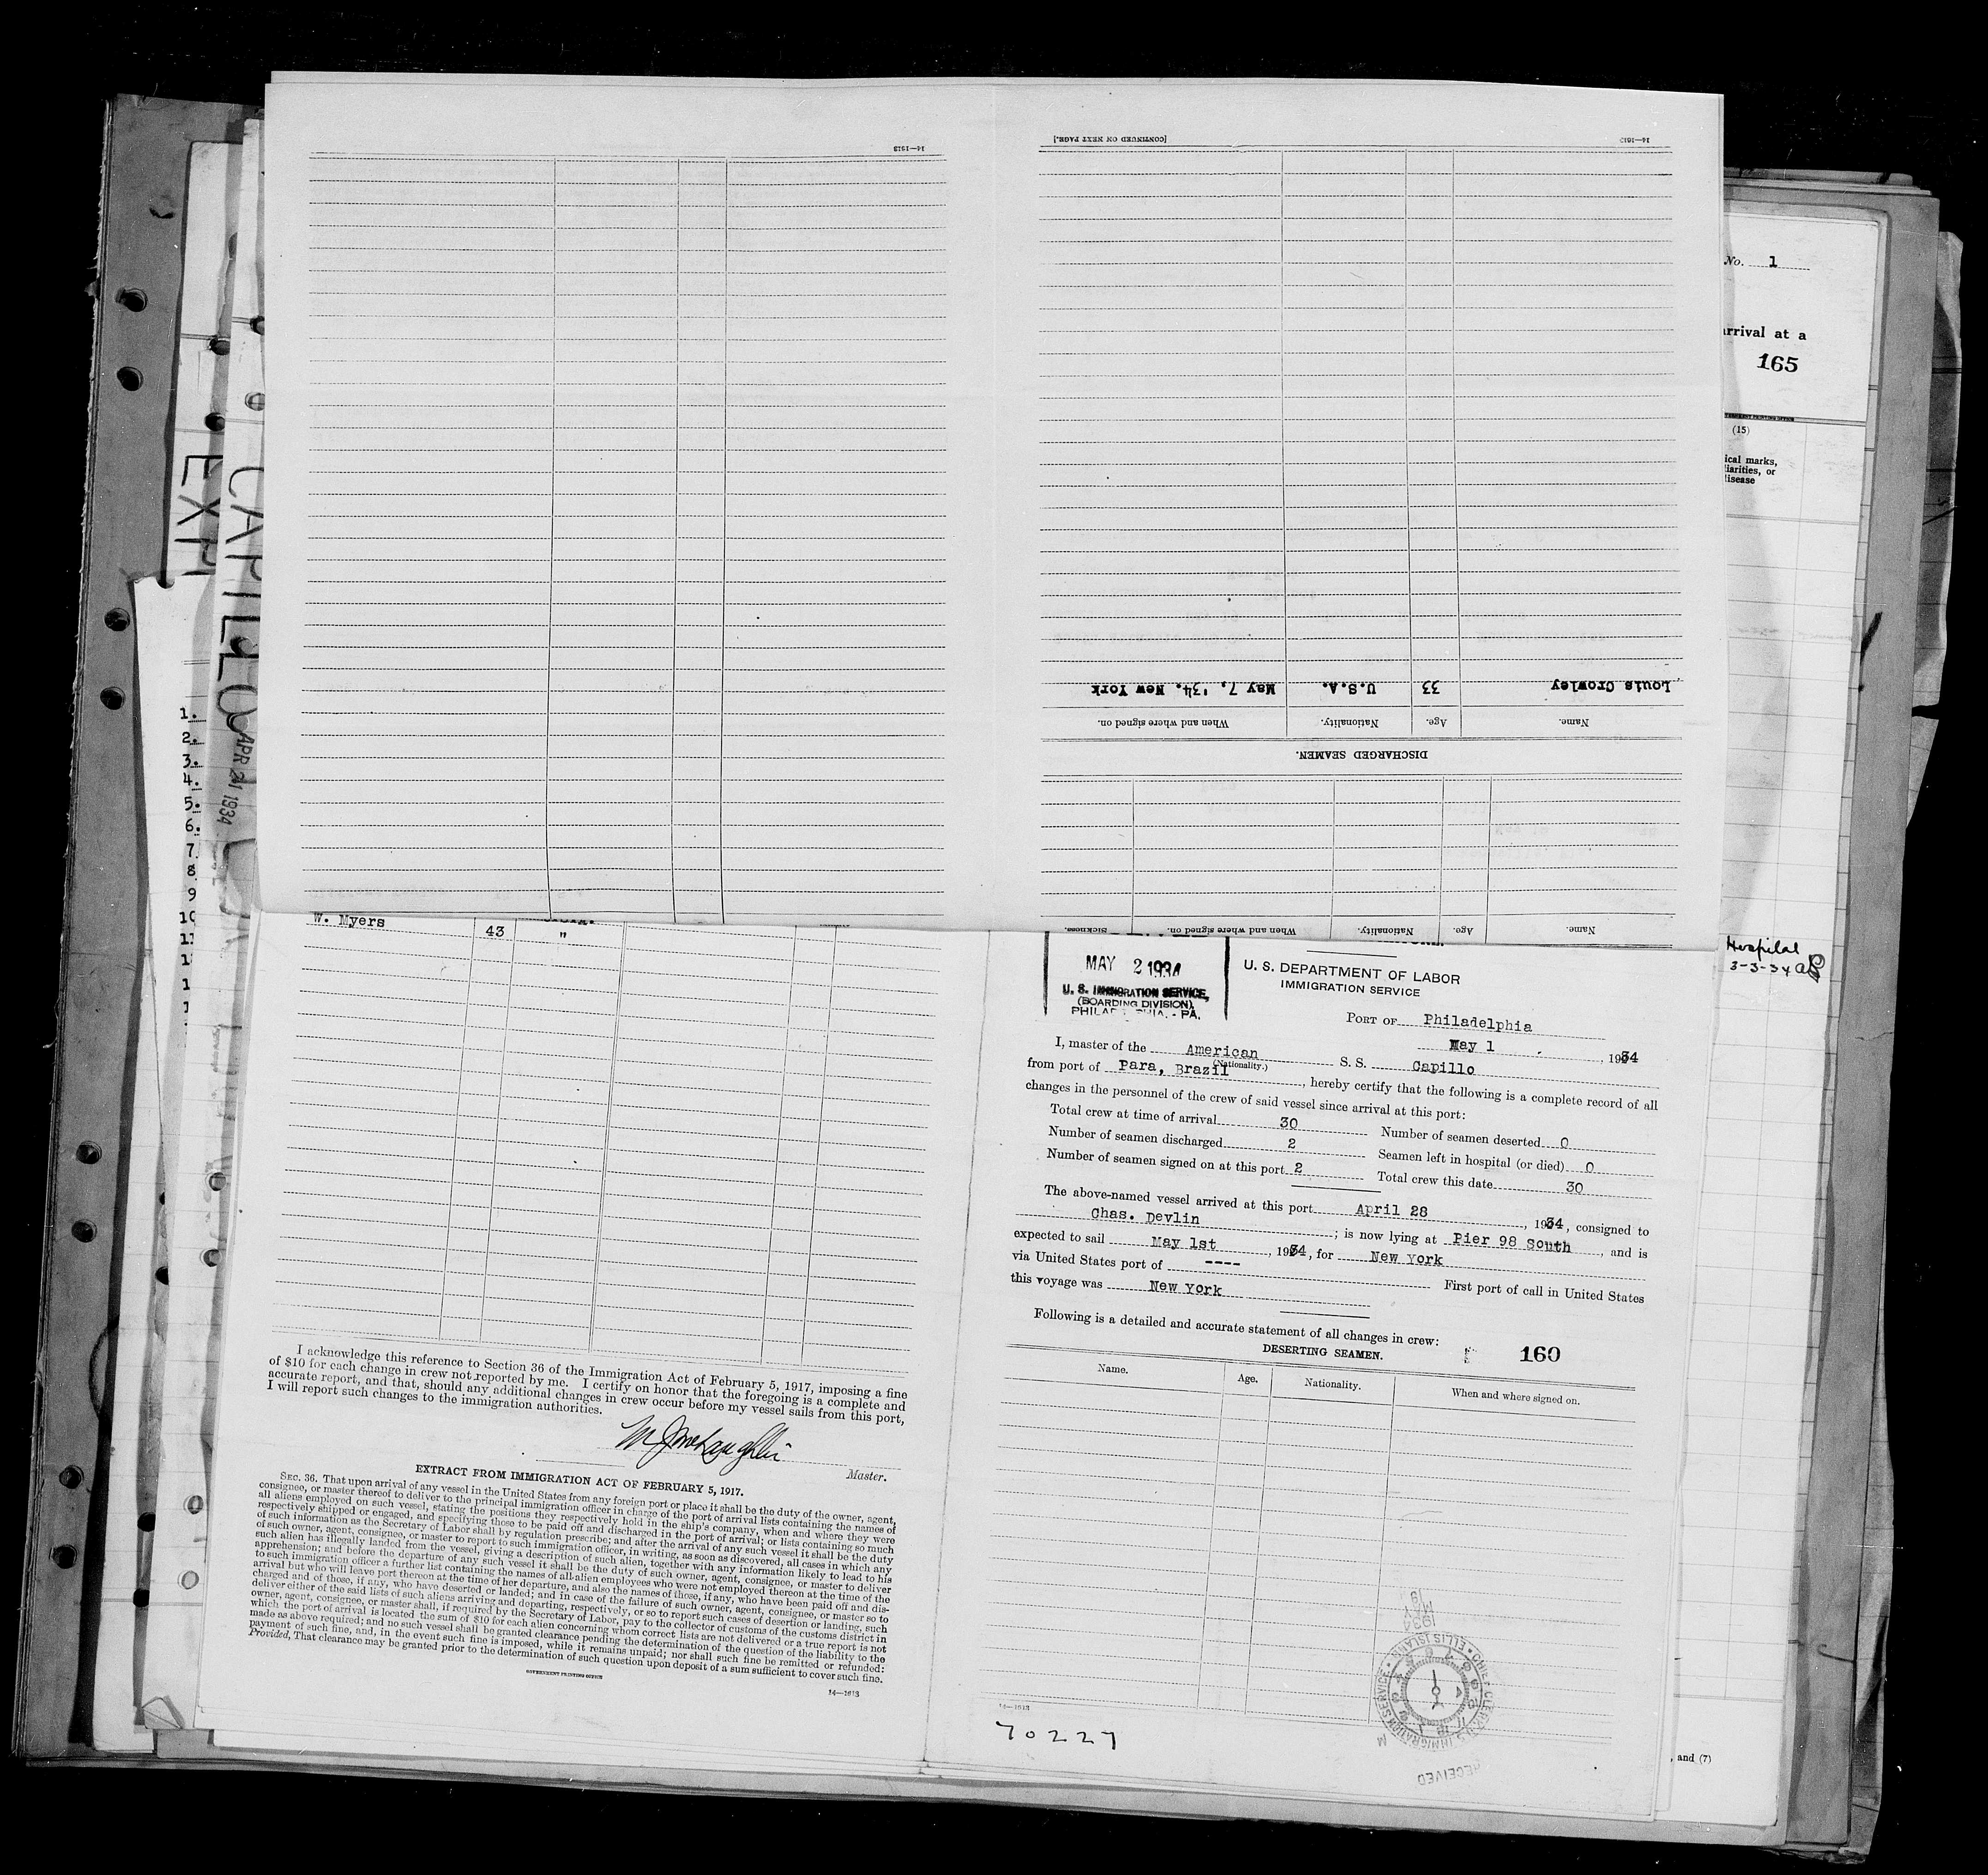 [CONTINUED ON NEXT PAGE.]
14—1613
14—1613
Louis Crowley 33 U.S.A. May 7, '34. New York
Name. Age. Nationality. When and where signed on.
DISCHARGED SEAMEN.
Name. Age. Nationality. When and where signed on. Sickness.
No. 1
arrival at a
165
(15)
ical marks,
liarities, or
disease
Hospital
3-3-34
, and (7)
EXP
CAPILLO
APR 21 1934
1.
2.
3.
4.
5.
6.
7.
8
9
10
11
W. Myers 43 "
I acknowledge this reference to Section 36 of the Immigration Act of February 5, 1917, imposing a fine
of $10 for each change in crew not reported by me. I certify on honor that the foregoing is a complete and
accurate report, and that, should any additional changes in crew occur before my vessel sails from this port,
I will report such changes to the immigration authorities.
Master.
EXTRACT FROM IMMIGRATION ACT OF FEBRUARY 5, 1917.
SEC. 36. That upon arrival of any vessel in the United States from any foreign port or place it shall be the duty of the owner, agent,
consignee, or master thereof to deliver to the principal immigration officer in charge of the port of arrival lists containing the names of
all aliens employed on such vessel, stating the positions they respectively hold in the ship's company, when and where they were
respectively shipped or engaged, and specifying those to be paid off and discharged in the port of arrival; or lists containing so much
of such information as the Secretary of Labor shall by regulation prescribe; and after the arrival of any such vessel it shall be the duty
of such owner, agent, consignee, or master to report to such immigration officer, in writing, as soon as discovered, all cases in which any
such alien has illegally landed from the vessel, giving a description of such alien, together with any information likely to lead to his
apprehension; and before the departure of any such vessel it shall be the duty of such owner, agent, consignee, or master to deliver
to such immigration officer a further list containing the names of all alien employees who were not employed thereon at the time of the
arrival but who will leave port thereon at the time of her departure, and also the names of those, if any, who have been paid off and dis-
charged and of those, if any, who have deserted or landed; and in case of the failure of such owner, agent, consignee, or master so to
deliver either of the said lists of such aliens arriving and departing, respectively, or so to report such cases of desertion or landing, such
owner, agent, consignee, or master shall, if required by the Secretary of Labor, pay to the collector of customs of the customs district in
which the port of arrival is located the sum of $10 for each alien concerning whom correct lists are not delivered or a true report is not
made as above required; and no such vessel shall be granted clearance pending the determination of the question of the liability to the
payment of such fine, and, in the event such fine is imposed, while it remains unpaid; nor shall such fine be remitted or refunded:
Provided, That clearance may be granted prior to the determination of such question upon deposit of a sum sufficient to cover such fine.
GOVERNMENT PRINTING OFFICE
14—1613
MAY 2 1934
U. S. IMMIGRATION SERVICE,
(BOARDING DIVISION),
PHILADELPHIA, - PA.
U. S. DEPARTMENT OF LABOR
IMMIGRATION SERVICE
PORT OF Philadelphia
May 1, 1934
I, master of the American S. S. Capillo
(Nationality.)
from port of Para, Brazil, hereby certify that the following is a complete record of all
changes in the personnel of the crew of said vessel since arrival at this port:
Total crew at time of arrival 30 Number of seamen deserted 0
Number of seamen discharged 2 Seamen left in hospital (or died) 0
Number of seamen signed on at this port 2 Total crew this date 30
The above-named vessel arrived at this port April 28, 1934, consigned to
Chas. Devlin; is now lying at Pier 98 South, and is
expected to sail May 1st, 1934, for New York
via United States port of ---- First port of call in United States
this voyage was New York
Following is a detailed and accurate statement of all changes in crew:
160
DESERTING SEAMEN.
Name. Age. Nationality. When and where signed on.
14—1613
70227
RECEIVED